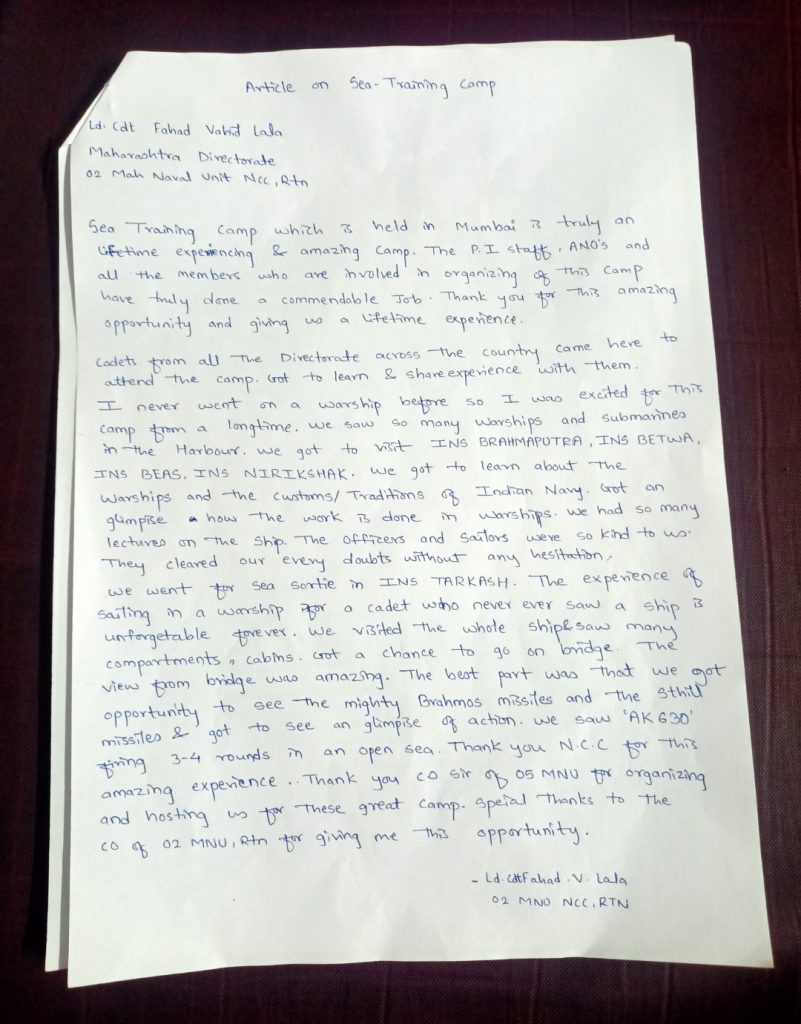 Article on Sea-Training Camp
Ld. Cdt Fahad Vahid Lala
Maharashtra Directorate
02 Mah Naval Unit NCC, Rtn
Sea Training Camp which is held in Mumbai is truly an
lifetime experiencing & amazing Camp. The P.I staff, ANO's and
all the members who are involved in organizing of this Camp
have truly done a commendable Job. Thank you for this amazing
opportunity and giving us a lifetime experience.
Cadets from all the Directorate across the country came here to
attend the camp. Got to learn & share experience with them.
I never went on a warship before so I was excited for this
camp from a longtime. We saw so many warships and submarines
in the Harbour. We got to visit INS BRAHMAPUTRA, INS BETWA,
INS BEAS, INS NIRIKSHAK. We got to learn about the
warships and the customs/Traditions of Indian Navy. Got an
glimpise how the work is done in warships. We had so many
lectures on the ship. The officers and sailors were so kind to us.
They cleared our every doubts without any hesitation.
We went for sea sortie in INS TARKASH. The experience of
sailing in a warship for a cadet who never ever saw a ship is
unforgetable forever. We visited the whole ship & saw many
compartments, cabins. Got a chance to go on bridge. The
view from bridge was amazing. The best part was that we got
opportunity to see the mighty Brahmos missiles and the sthill
missiles & got to see an glimpise of action. We saw 'AK 630'
firing 3-4 rounds in an open sea. Thank you N.C.C for this
amazing experience.. Thank you CO sir of 05 MNU for organizing
and hosting us for these great camp. Speial thanks to the
CO of 02 MNU, Rtn for giving me this opportunity.
- Ld. Cdt Fahad. V. Lala
02 MNU NCC, RTN